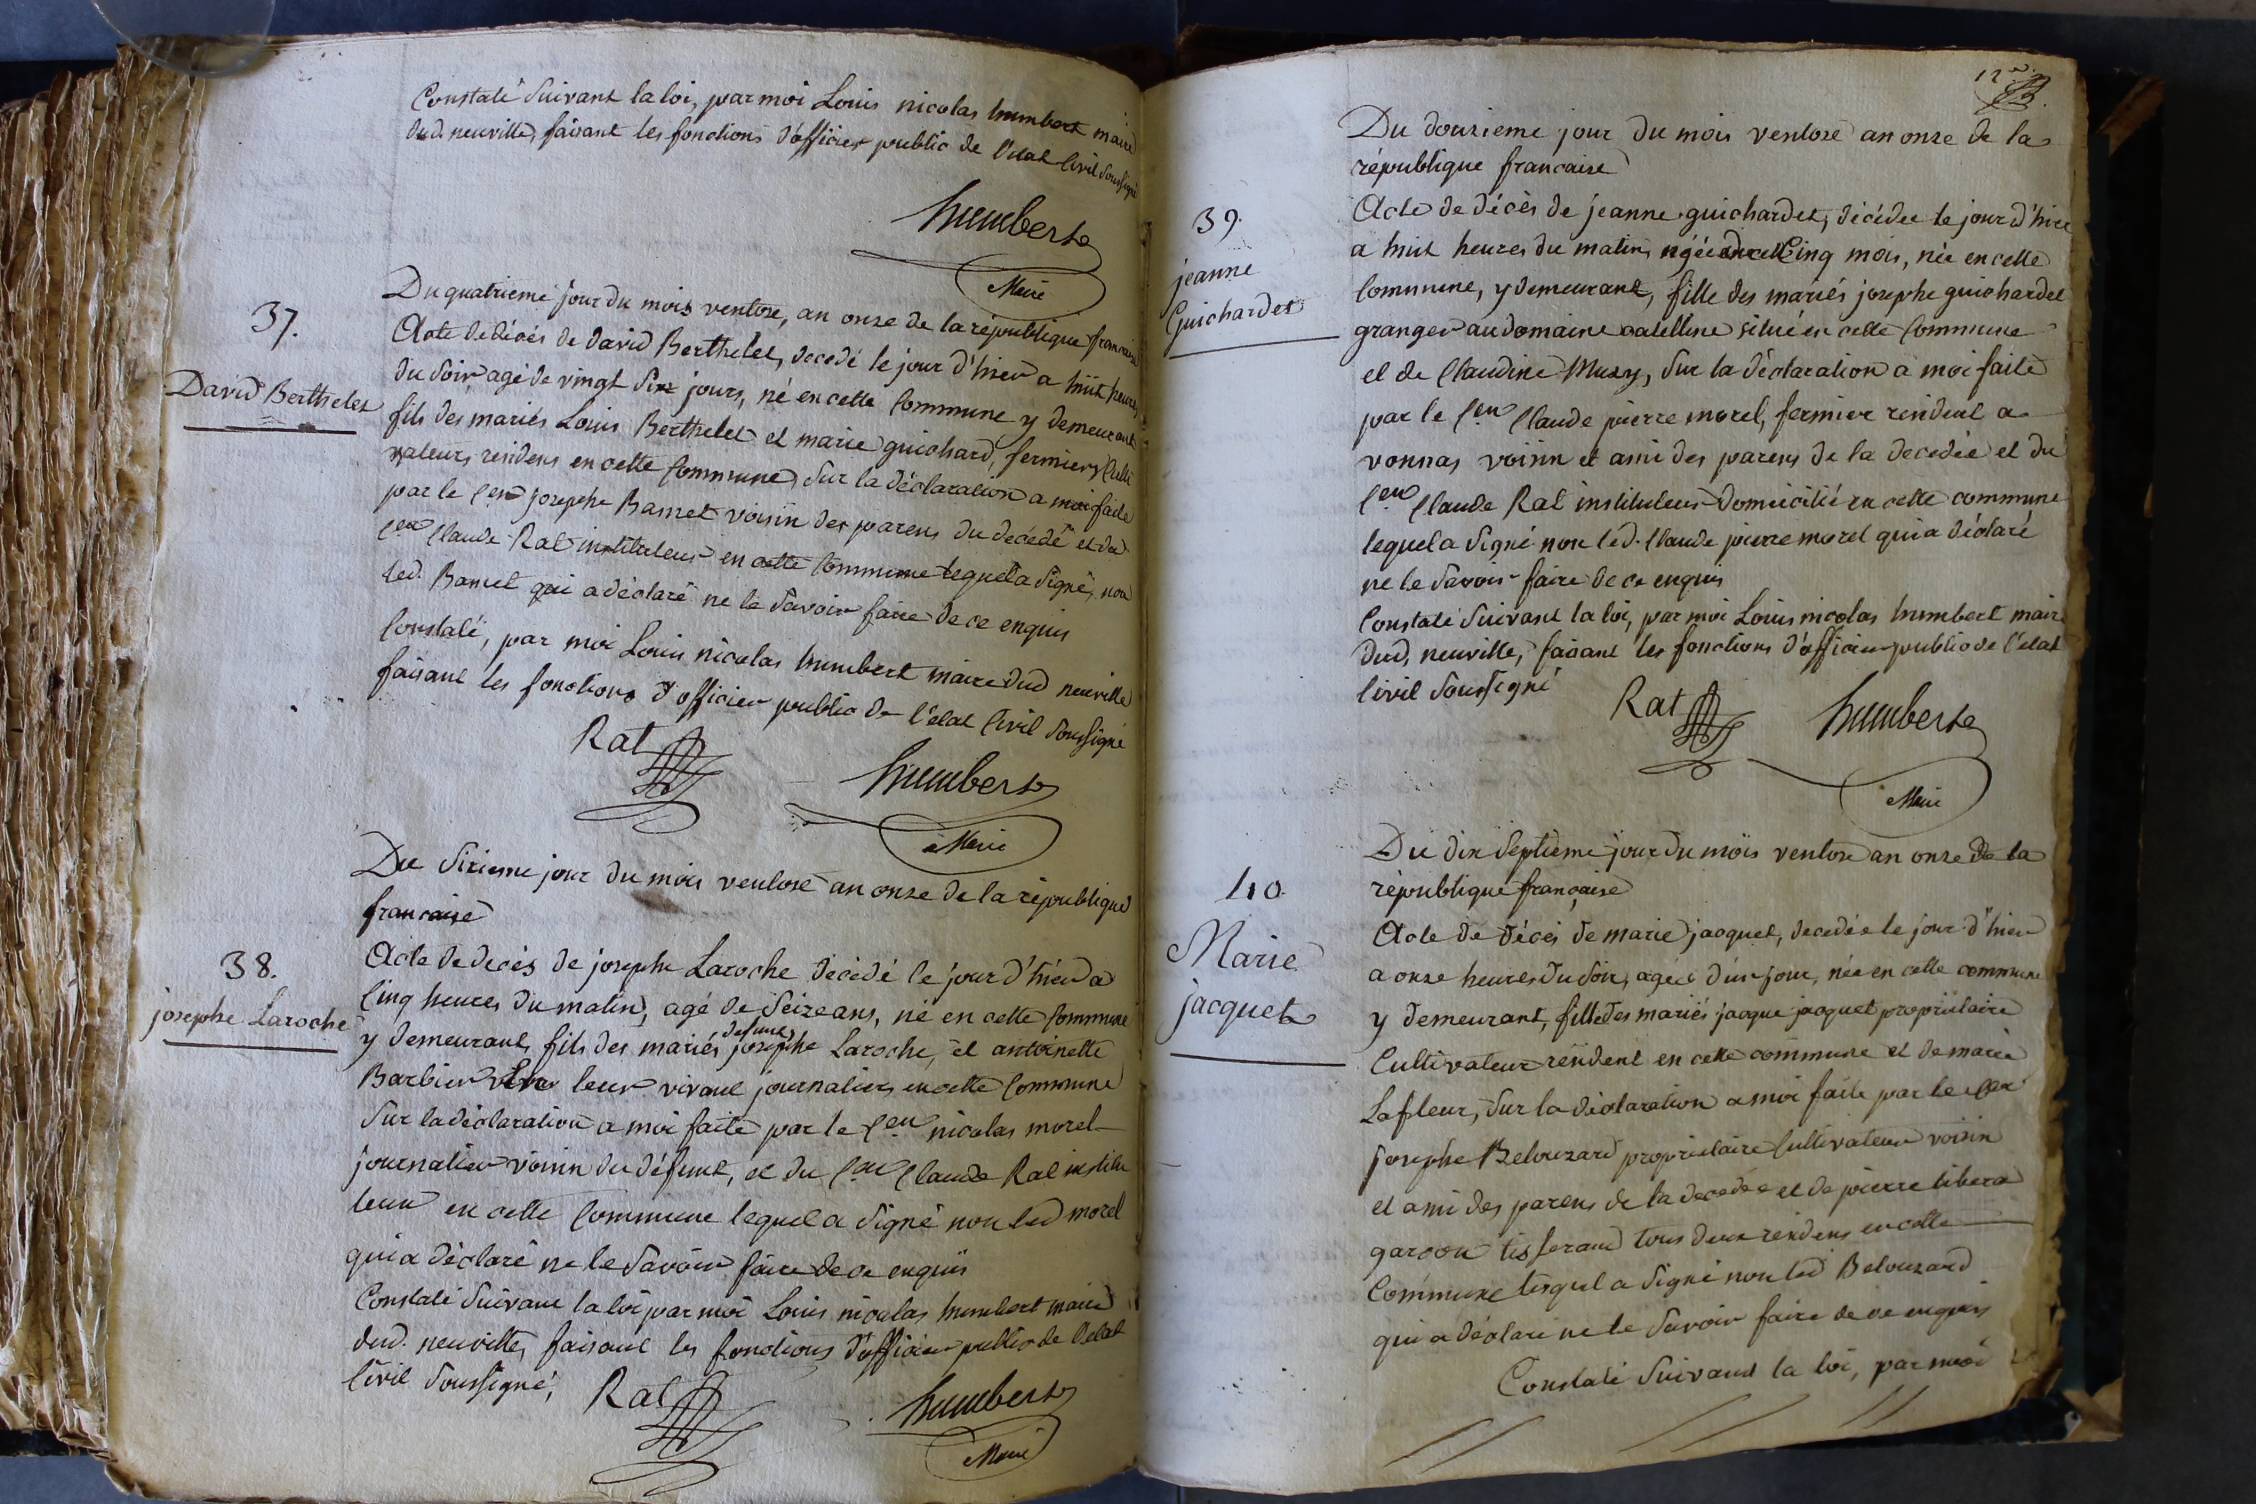 Constaté Suivant la loi, par moi Louis nicolas humbert maire
dud. neuville, faisant les fonctions d'officier public de l'état Civil soussigné
humbert
Maire
37.
David Berthelet
Du quatrieme jour du mois ventose, an onze de la république francaise
Acte de décés de david Berthelet, decedé le jour d'hier a huit heures
du Soir agé de vingt Six jours, né en cette Commune y demeurant
fils des mariés Louis Berthelet et marie guichard, fermiers Culti
vateurs residens en cette Commune, Sur la déclaration a moi faite
par le Cen josephe Bamet voisin des parens du decédé et du
Cen Claude Rat instituteur en cette Commune lequel a Signé, non
led. Bamet qui a déclaré ne le Savoir faire de ce enquis
Constaté, par moi Louis nicolas humbert maire dud neuville
faisant les fonctions d'officier public de l'état Civil Soussigné
Rat humbert
Maire
Du Sixieme jour du mois ventose an onze de la république
francaise
38.
josephe Laroche
Acte de decés de josephe Laroche décédé le jour d'hier a
Cinq heures du matin, agé de Seize ans, né en cette Commune
defunt
y demeurant, fils des mariés josephe Laroche, et antoinette
Barbier leur vivant journaliers en cette Commune
Sur la déclaration a moi faite par le Cen nicolas morel
journalier voisin du défunt, et du Cen Claude Rat institu
teur en cette Commune lequel a Signé non led morel
qui a déclaré ne le Savoir faire de ce enquis
Constaté Suivant la loi par moi Louis nicolas humbert maire
dud. neuville, faisant les fonctions d'officier public de l'état
Civil Soussigné,
Rat humbert
Maire
12
39.
jeanne
Guichardet
Du douzieme jour du mois ventose an onze de la
république francaise
Acte de décès de jeanne guichardet, décédée le jour d'hier
a huit heures du matin, Cinq mois, née en cette
Commune, y demeurant, fille des mariés josephe guichardet
granger au domaine situé en cette Commune
et de Claudine Muzy, Sur la déclaration a moi faite
par le Cen Claude pierre morel, fermier resident a
vonnas voisin et ami des parens de la decedée et du
Cen Claude Rat instituteur domicilié en cette commune
lequel a Signé non led. Claude pierre morel qui a déclaré
ne le Savoir faire de ce enquis
Constaté Suivant la loi, par moi Louis nicolas humbert maire
dud. neuville, faisant les fonctions d'officier public de l'état
Civil Soussigné
Rat humbert
Maire
40.
Marie
jacquet
Du dix Septieme jour du mois ventose an onze de la
république française
Acte de décés de marie jacquet, decedée le jour d'hier
a onze heures du Soir, agée d'un jour, née en cette commune
y demeurant, fille des mariés jacque jacquet propriétaire
Cultivateur resident en cette commune et de marie
Lafleur, Sur la déclaration a moi faite par le Cen
josephe Belouzard propriétaire Cultivateur voisin
et ami des parens de la decedée et de pierre tibera
garcon tisserand tous deux residens en cette
Commune lequel a Signé non led Belouzard
qui a déclaré ne le Savoir faire de ce enquis
Constaté Suivant la loi, par moi